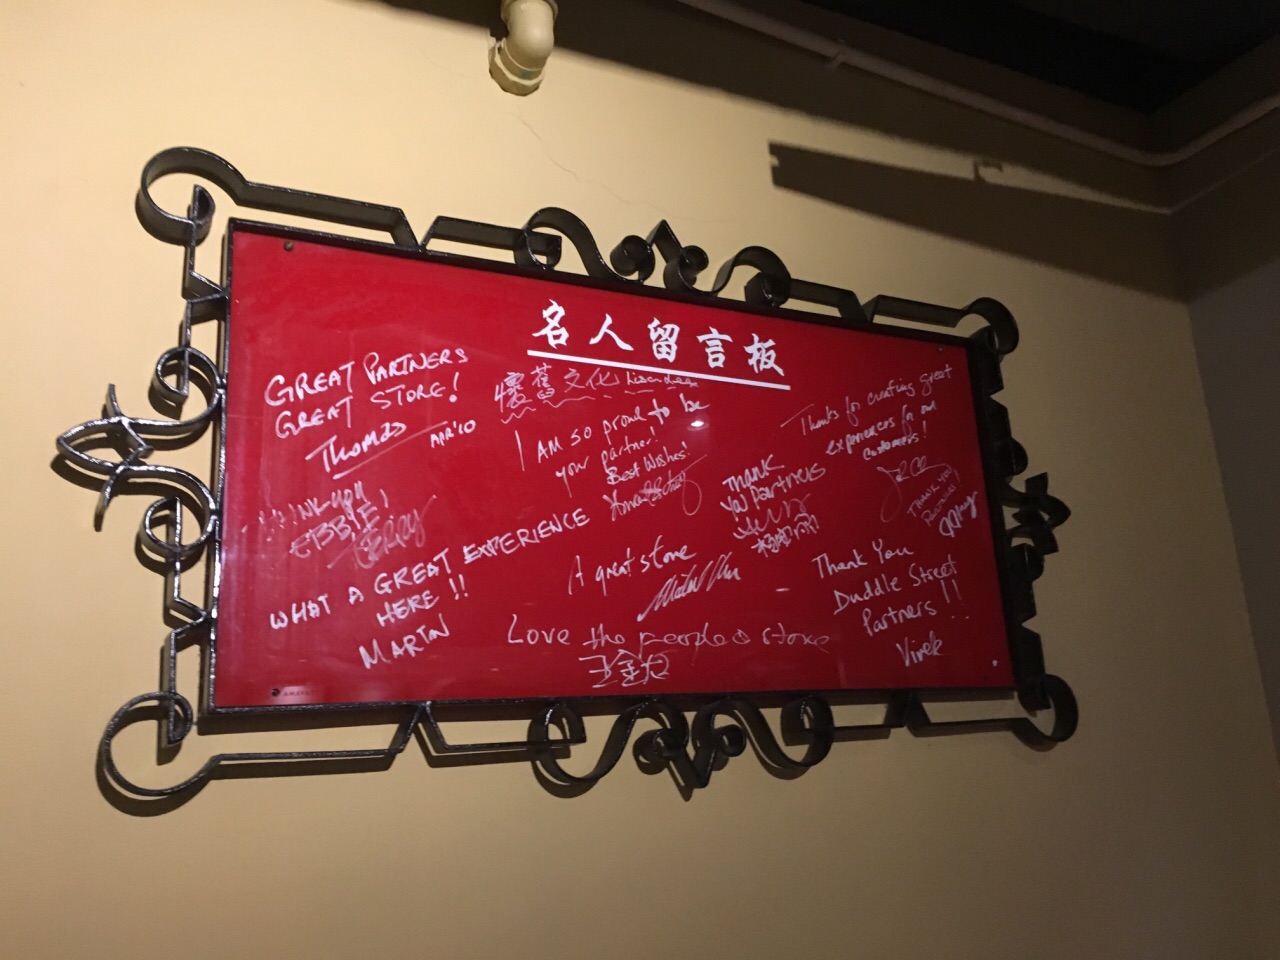 名人留言板
懷舊文化
GREAT PARTNERS
GREAT STORE!
THOMAS APR'10
I AM so proud to be
your partner!
Best Wishes!
Thanks for creating great
experiences for our
customers!
THANK
YOU Partners
THANK YOU
JERRY
WHAT A GREAT EXPERIENCE
HERE!!
MARTIN
A great store
Thank You
Duddle Street
Partners!!
Vivek
Love the people & store